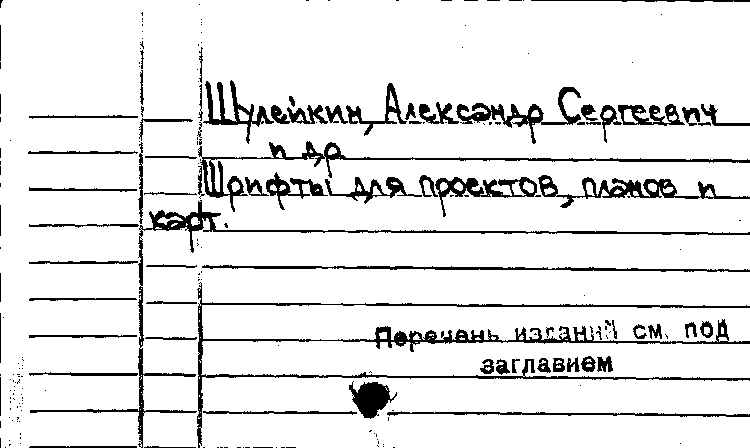 Шулейкин, Александр Сергеевич
и др.
Шрифты для проектов, планов и
карт.
Перечень изданий см. под
заглавием